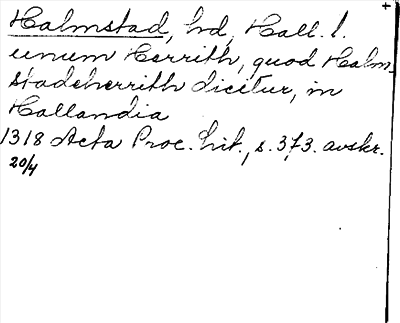 Halmstad, hd, Hall. l.
unum Herrith, quod Halm
stadeherrith dicitur, in
Hallandia
1318 Acta Proc. Lit., s. 373. avskr.
20/4